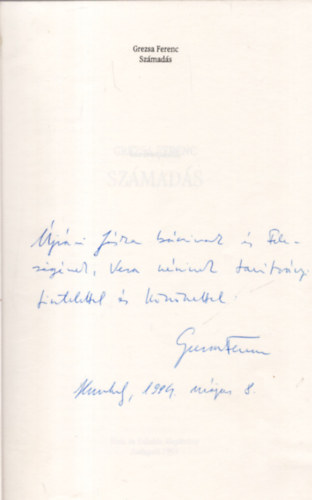 Grezsa Ferenc
Számadás
GREZSA FERENC
SZÁMADÁS
Józsa bácsinak és Fele-
ségének, Vera néninek tanítványi
tisztelettel és köszönettel.
Grezsa Ferenc
1984. május 8.